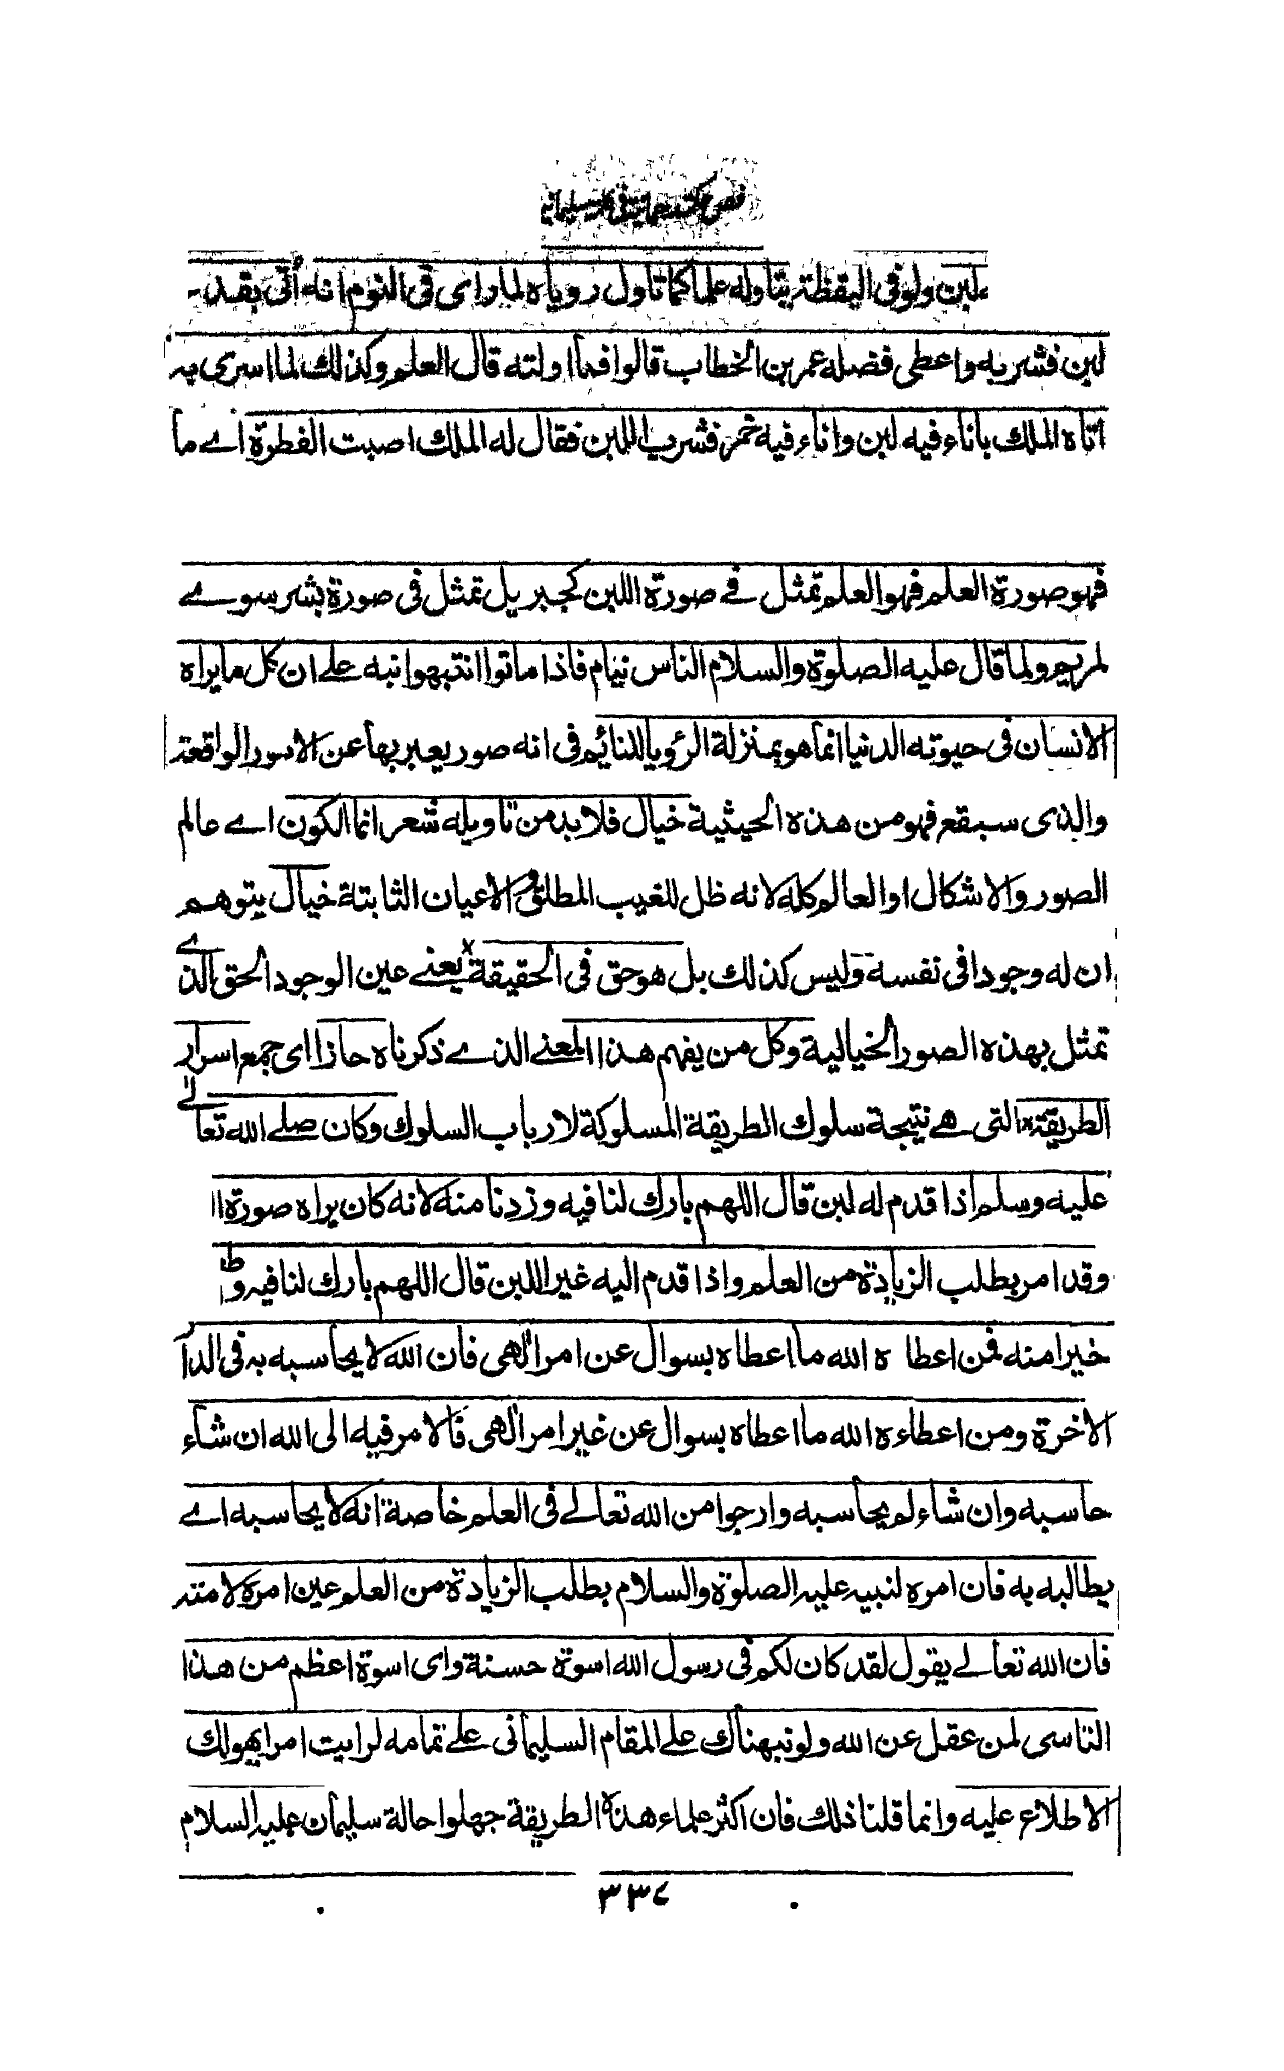 فص حكمة رحمانية فى كلمة سليمانية
لبن ولو فى اليقظة يتاوله علما كما تاول روياه لما راى فى النوم انه أتى بقدح
لبن فشربه واعطى فضله عمر بن الخطاب قالوا فما اولته قال العلم وكذلك لما اسرى به
اتاه الملك باناء فيه لبن واناء فيه خمر فشرب اللبن فقال له الملك اصبت الفطرة اے ما
فهو صورة العلم فهو العلم تمثل فے صورة اللبن كجبريل تمثل فى صورة بشر سوے
لمريم ولما قال عليه الصلوة والسلام الناس نيام فاذا ماتوا انتبهوا نبه علے ان كل ما يراه
الانسان فى حيوته الدنيا انما هو بمنزلة الرؤيا للنائم فى انه صور يعبر بها عن الامور الواقعة
والذى سيقع فهو من هذه الحيثية خيال فلا بد من تاويله شعر انما الكون اے عالم
الصور والاشكال او العالم كله لانه ظل للغيب المطلق والاعيان الثابتة خيال يتوهم
ان له وجودا فى نفسه وليس كذلك بل هو حق فى الحقيقة يعنے عين الوجود الحق الذے
تمثل بهذه الصور الخيالية وكل من يفهم هذا المعنے الذے ذكرناه حاز اى جمع اسرار
الطريقة التى هے نتيجة سلوك الطريقة المسلوكة لارباب السلوك وكان صلے الله تعالے
عليه وسلم اذا قدم له لبن قال اللهم بارك لنا فيه وزدنا منه لانه كان يراه صورة ا
وقد امر بطلب الزيادة من العلم واذا قدم اليه غير اللبن قال اللهم بارك لنا فيه و
خيرا منه فمن اعطاه الله ما اعطاه بسوال عن امر الهى فان الله لا يحاسبه به فى الدا
الاخرة ومن اعطاءه الله ما اعطاه بسوال عن غير امر الهى فالامر فيه الى الله ان شاء
حاسبه وان شاء لم يحاسبه وارجوا من الله تعالے فى العلم خاصة انه لا يحاسبه اے
يطالبه به فان امره لنبيه عليه الصلوة والسلام بطلب الزيادة من العلم عين امره لامته
فان الله تعالے يقول لقد كان لكم فى رسول الله اسوة حسنة واى اسوة اعظم من هذا
التاسى لمن عقل عن الله ولو نبهناك علے المقام السليمانى علے تمامه لرايت امرا يهولك
الاطلاع عليه وانما قلنا ذلك فان اكثر علماء هذه الطريقة جهلوا حالة سليمان عليه السلام
٣٣٧